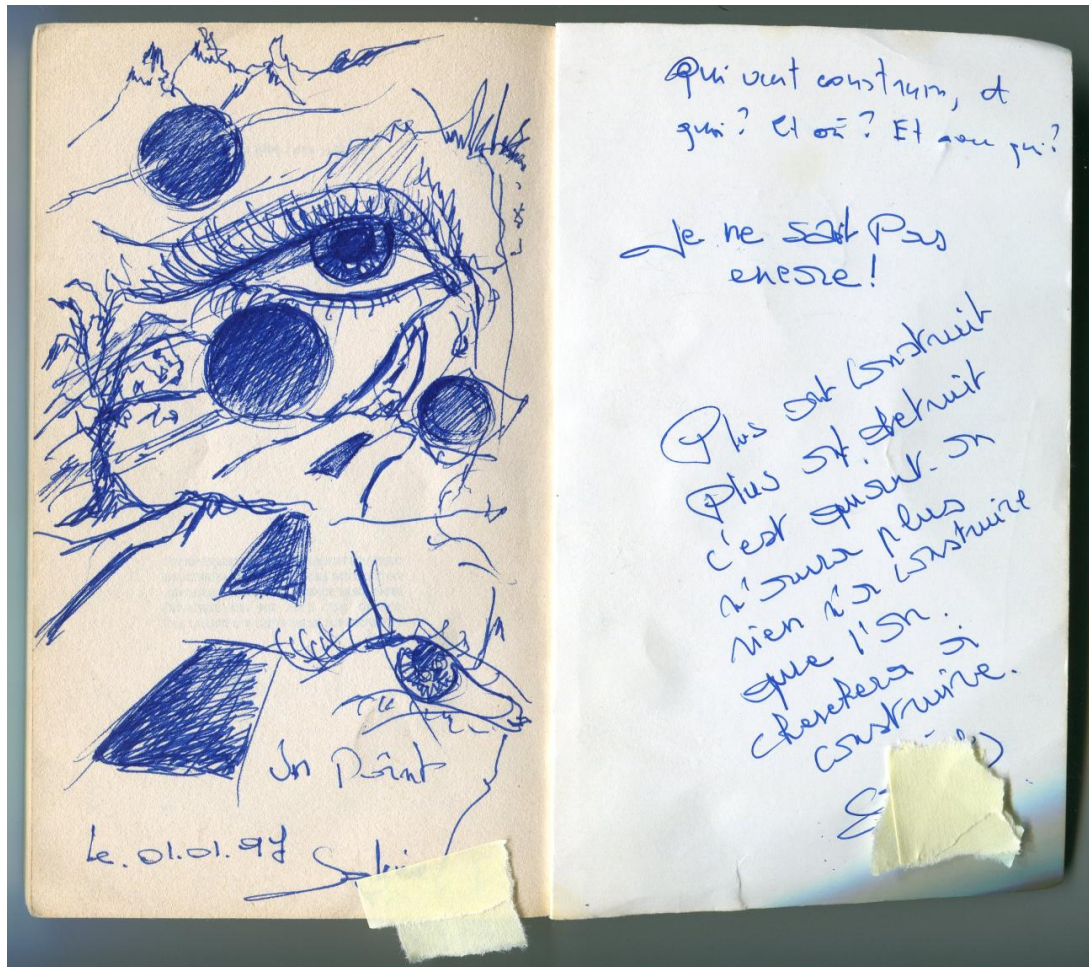 Un Point
Le. 01.01.97
Qui veut construire, et
quoi? Et où? Et pour qui?
Je ne sait Pas
encore!
Plus ont construit
plus ont detruit
c'est quant on
n'aura plus
rien n'a construire
que l'on
cherchera a
construire.